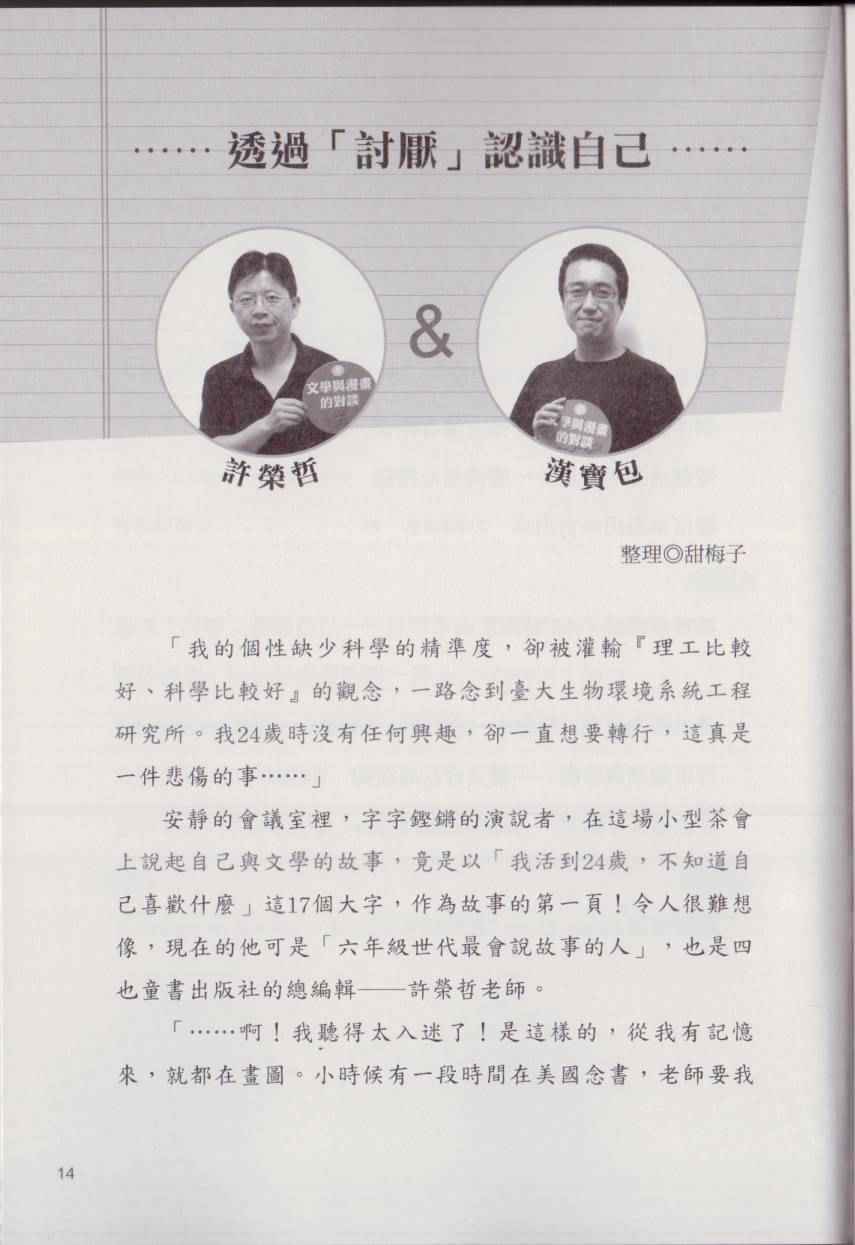 ……透過「討厭」認識自己……
&
文學與漫畫
的對談
文學與漫畫
的對談
許榮哲
漢寶包
整理◎甜梅子
「我的個性缺少科學的精準度，卻被灌輸『理工比較
好、科學比較好』的觀念，一路念到臺大生物環境系統工程
研究所。我24歲時沒有任何興趣，卻一直想要轉行，這真是
一件悲傷的事……」
安靜的會議室裡，字字鏗鏘的演說者，在這場小型茶會
上說起自己與文學的故事，竟是以「我活到24歲，不知道自
己喜歡什麼」這17個大字，作為故事的第一頁！令人很難想
像，現在的他可是「六年級世代最會說故事的人」，也是四
也童書出版社的總編輯──許榮哲老師。
「……啊！我聽得太入迷了！是這樣的，從我有記憶
來，就都在畫圖。小時候有一段時間在美國念書，老師要我
14